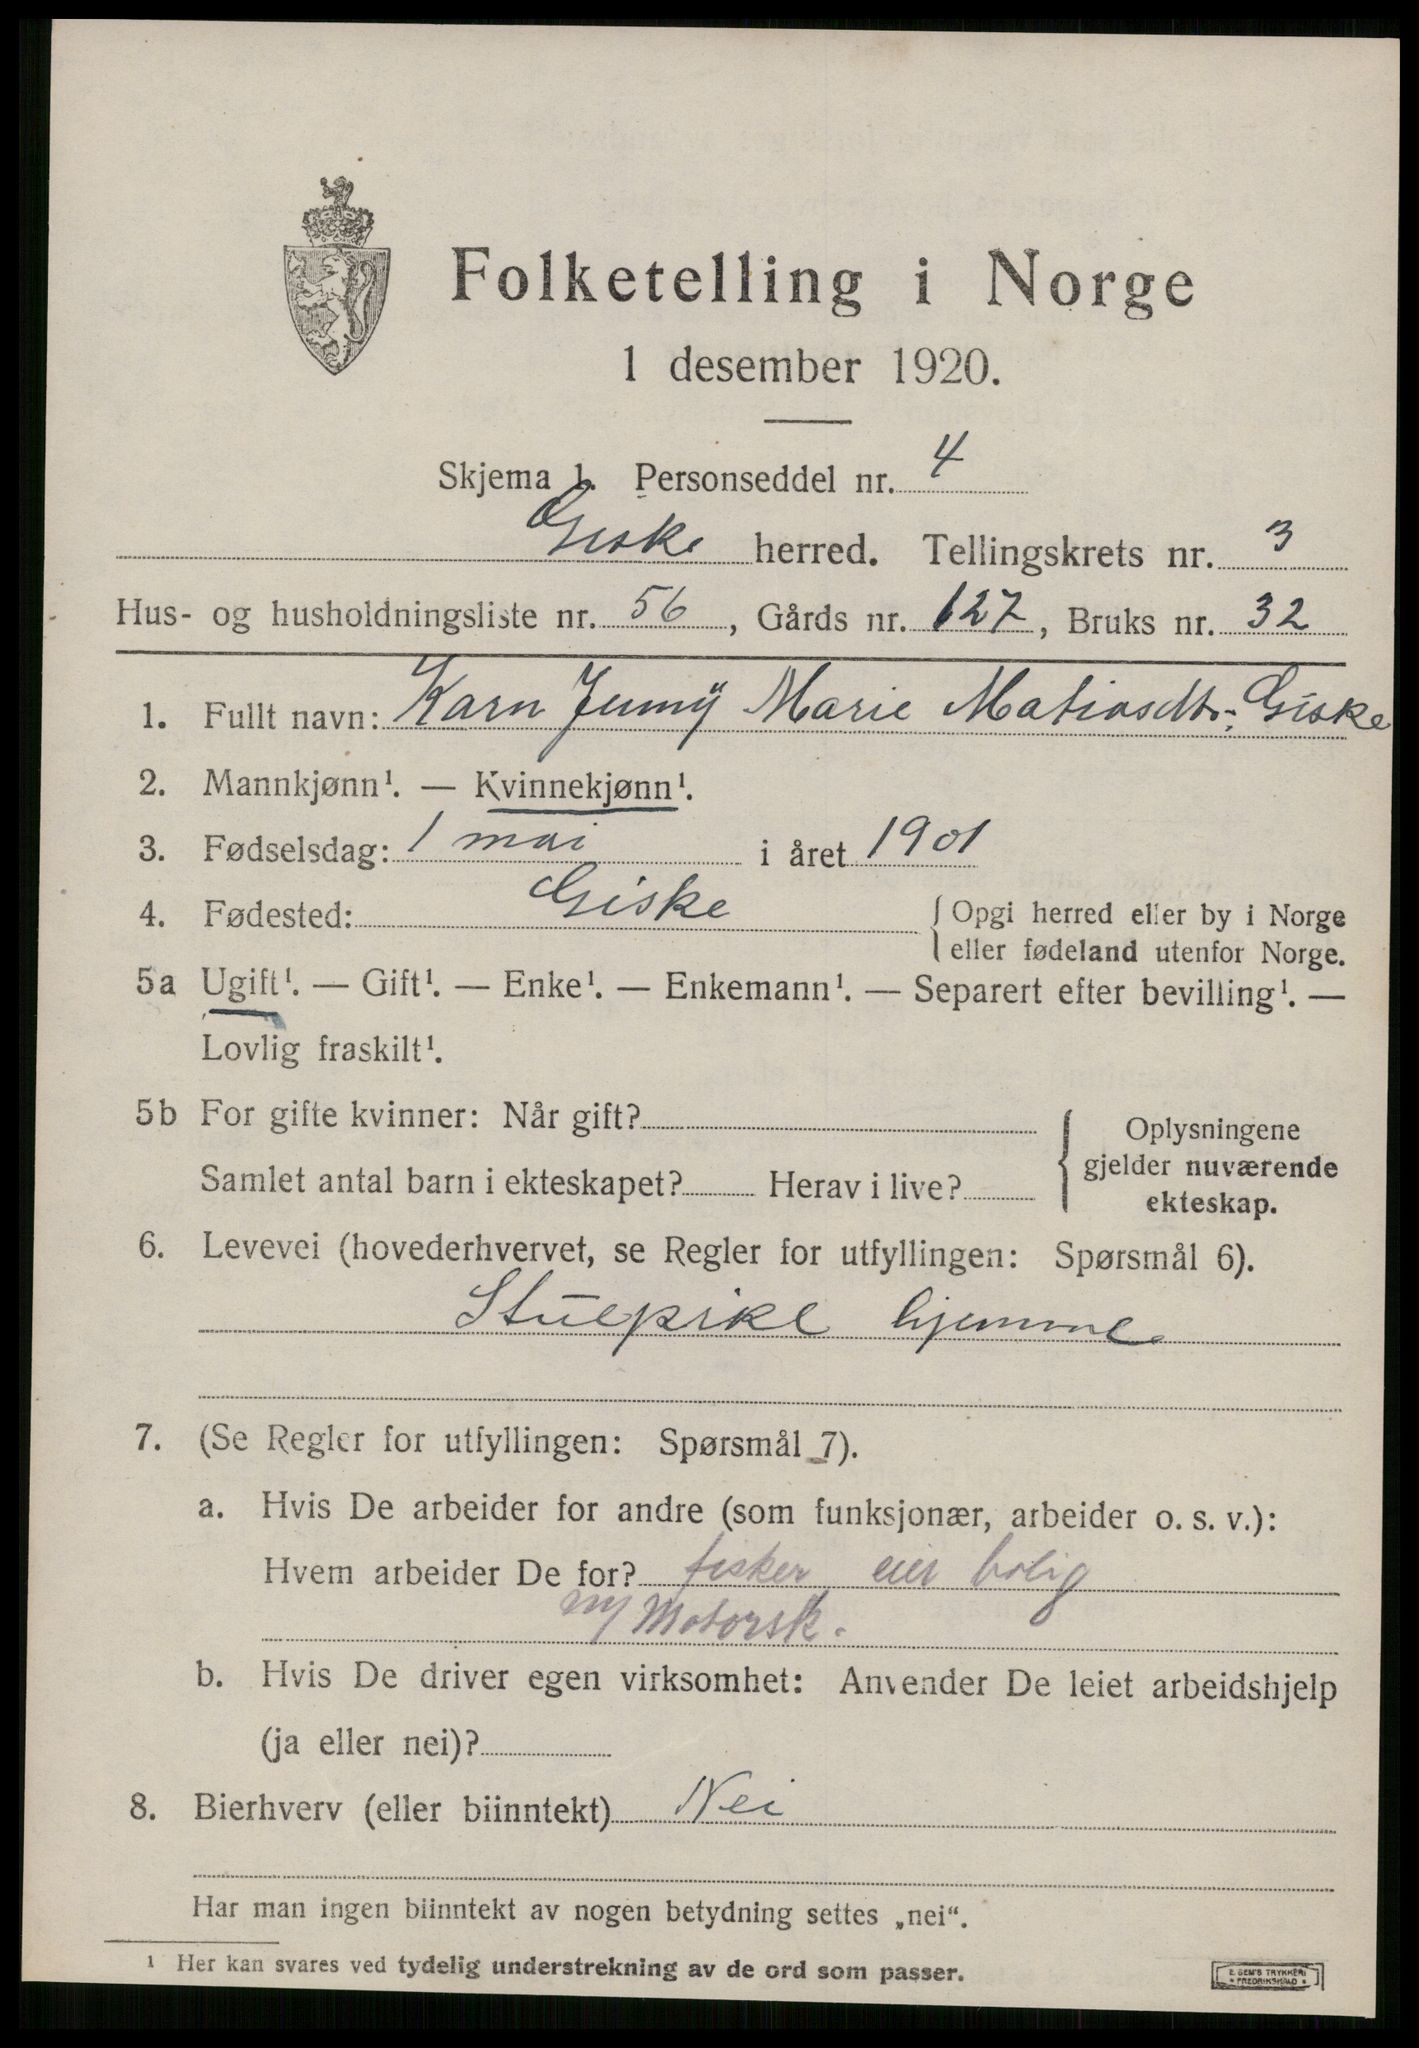 Folketelling i Norge
1 desember 1920.
Skjema 1. Personseddel nr. 4
Giske herred. Tellingskrets nr. 3
Hus- og husholdningsliste nr. 56, Gårds nr. 127, Bruks nr. 32
1. Fullt navn: Karn Jenny Marie Matiasdtr. Giske
2. Mannkjønn¹. — Kvinnekjønn¹.
3. Fødselsdag: 1 mai i året 1901
4. Fødested: Giske { Opgi herred eller by i Norge
eller fødeland utenfor Norge.
5a Ugift¹. — Gift¹. — Enke¹. — Enkemann¹. — Separert efter bevilling¹. —
Lovlig fraskilt¹.
5b For gifte kvinner: Når gift? { Oplysningene
gjelder nuværende
Samlet antal barn i ekteskapet? Herav i live?
ekteskap.
6. Levevei (hovederhvervet, se Regler for utfyllingen: Spørsmål 6).
Stuepike hjemme
7. (Se Regler for utfyllingen: Spørsmål 7).
a. Hvis De arbeider for andre (som funksjonær, arbeider o. s. v.):
Hvem arbeider De for? fisker eier bolig
Motorsk.
b. Hvis De driver egen virksomhet: Anvender De leiet arbeidshjelp
(ja eller nei)?
8. Bierhverv (eller biinntekt) Nei
Har man ingen biinntekt av nogen betydning settes „nei“.
¹ Her kan svares ved tydelig understrekning av de ord som passer.
E. SEM'S TRYKKERI
FREDRIKSHALD